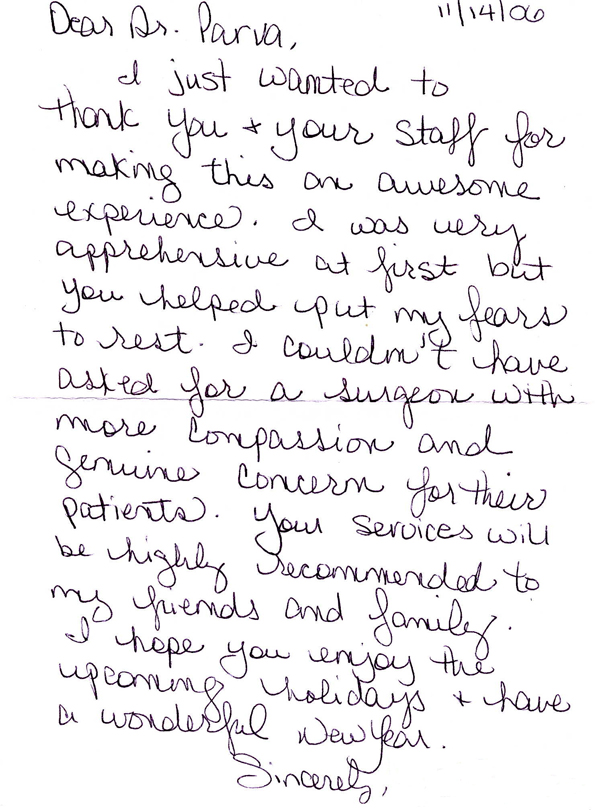 11/14/06
Dear Dr. Parva,
I just wanted to
thank you + your staff for
making this an awesome
experience. I was very
apprehensive at first but
you helped put my fears
to rest. I couldn't have
asked for a surgeon with
more compassion and
genuine concern for their
patients. Your services will
be highly recommended to
my friends and family.
I hope you enjoy the
upcoming holidays + have
a wonderful New Year.
Sincerely,